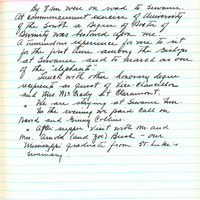 By 8 am were on road to Sewanee.
At commencement exercise of University
of the South a Degree of Doctor of
Divinity was bestowed upon me.
A humorous experience for me to sit
for the first time among the Bishops
at Sewanee and to march as one
of the "elephants".
Lunch with other honorary degree
recipients as guest of Vice-Chancellor
and Mrs. McCrady at Claramont.
We are staying at Sewanee Inn.
In the evening we paid call on
David and Ginny Collins.
After supper visit with Mr and
Mrs. Arnold (and Joe) Bush - our
Mississippi graduate from St. Luke's
Seminary.